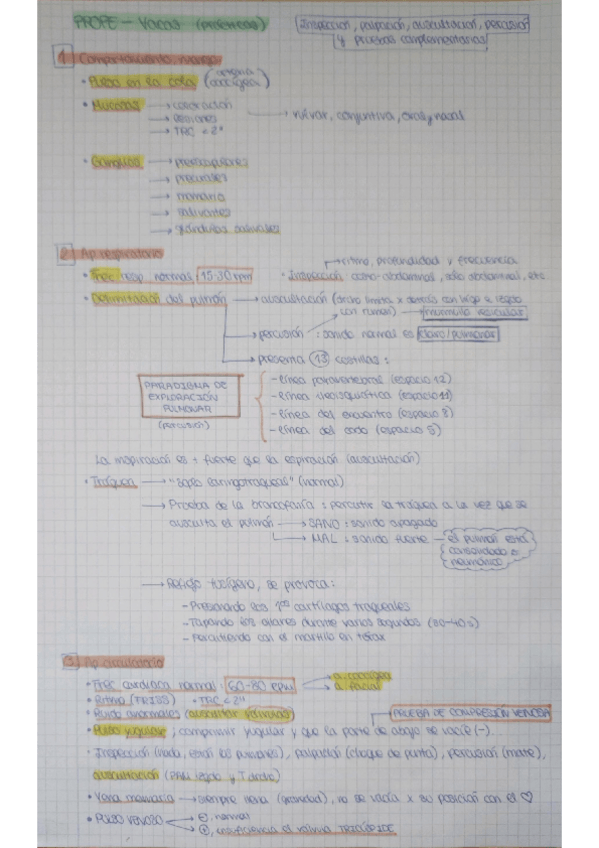 PROPE - Vacas (prácticas)
Inspección, palpación, auscultación, percusión
y pruebas complementarias
1 Comportamiento, manejo
• Pulso en la cola (arteria coccígea)
• Mucosas → coloración
→ lesiones → vulvar, conjuntiva, oral y nasal
→ TRC < 2"
• Ganglios → preescapulares
→ precrurales
→ mamario
→ salivares
→ glándulas salivales
2 Ap. respiratorio
→ ritmo, profundidad y frecuencia
• Frec. resp. normal: 15-30 rpm • Inspección costo-abdominal, sólo abdominal, etc
• Delimitación del pulmón → auscultación (
con rumen) → murmullo vesicular
→ percusión: sonido normal es claro/pulmonar
→ presenta 13 costillas:
PARADIGMA DE
EXPLORACIÓN
PULMONAR
(percusión)
- línea paravertebral (espacio 12)
- línea ileoisquiática (espacio 11)
- línea del encuentro (espacio 8)
- línea del codo (espacio 5)
La inspiración es + fuerte que la espiración (auscultación)
• Tráquea → "soplo laringotraqueal" (normal)
→ Prueba de la broncofonía: percutir la tráquea a la vez que se
ausculta el pulmón → SANO: sonido apagado
→ MAL: sonido fuerte - el pulmón está
consolidado o
neumónico
→ Reflejo tusígeno, se provoca:
- Presionando los 1os cartílagos traqueales
- Tapando los ollares durante varios segundos (30-40s)
- Percutiendo con el martillo en tórax
3 Ap. circulatorio
• Frec cardíaca normal: 60-80 rpm → a. coccígea
→ a. facial
• Ritmo • TRC < 2"
• Ruido anormales (auscultar válvulas)
PRUEBA DE COMPRESIÓN VENOSA
• Pulso yugular; comprimir yugular y que la parte de abajo se vacíe (-).
• Inspección (nada, están los pulmones), palpación (choque de punta), percusión (mate),
auscultación (PAM izqdo y T drcho)
• Vena mamaria → siempre llena (gravedad), no se vacía x su posición con el ♡
• PULSO VENOSO → ⊖, normal
→ ⊕, insuficiencia el válvula TRICÚSPIDE